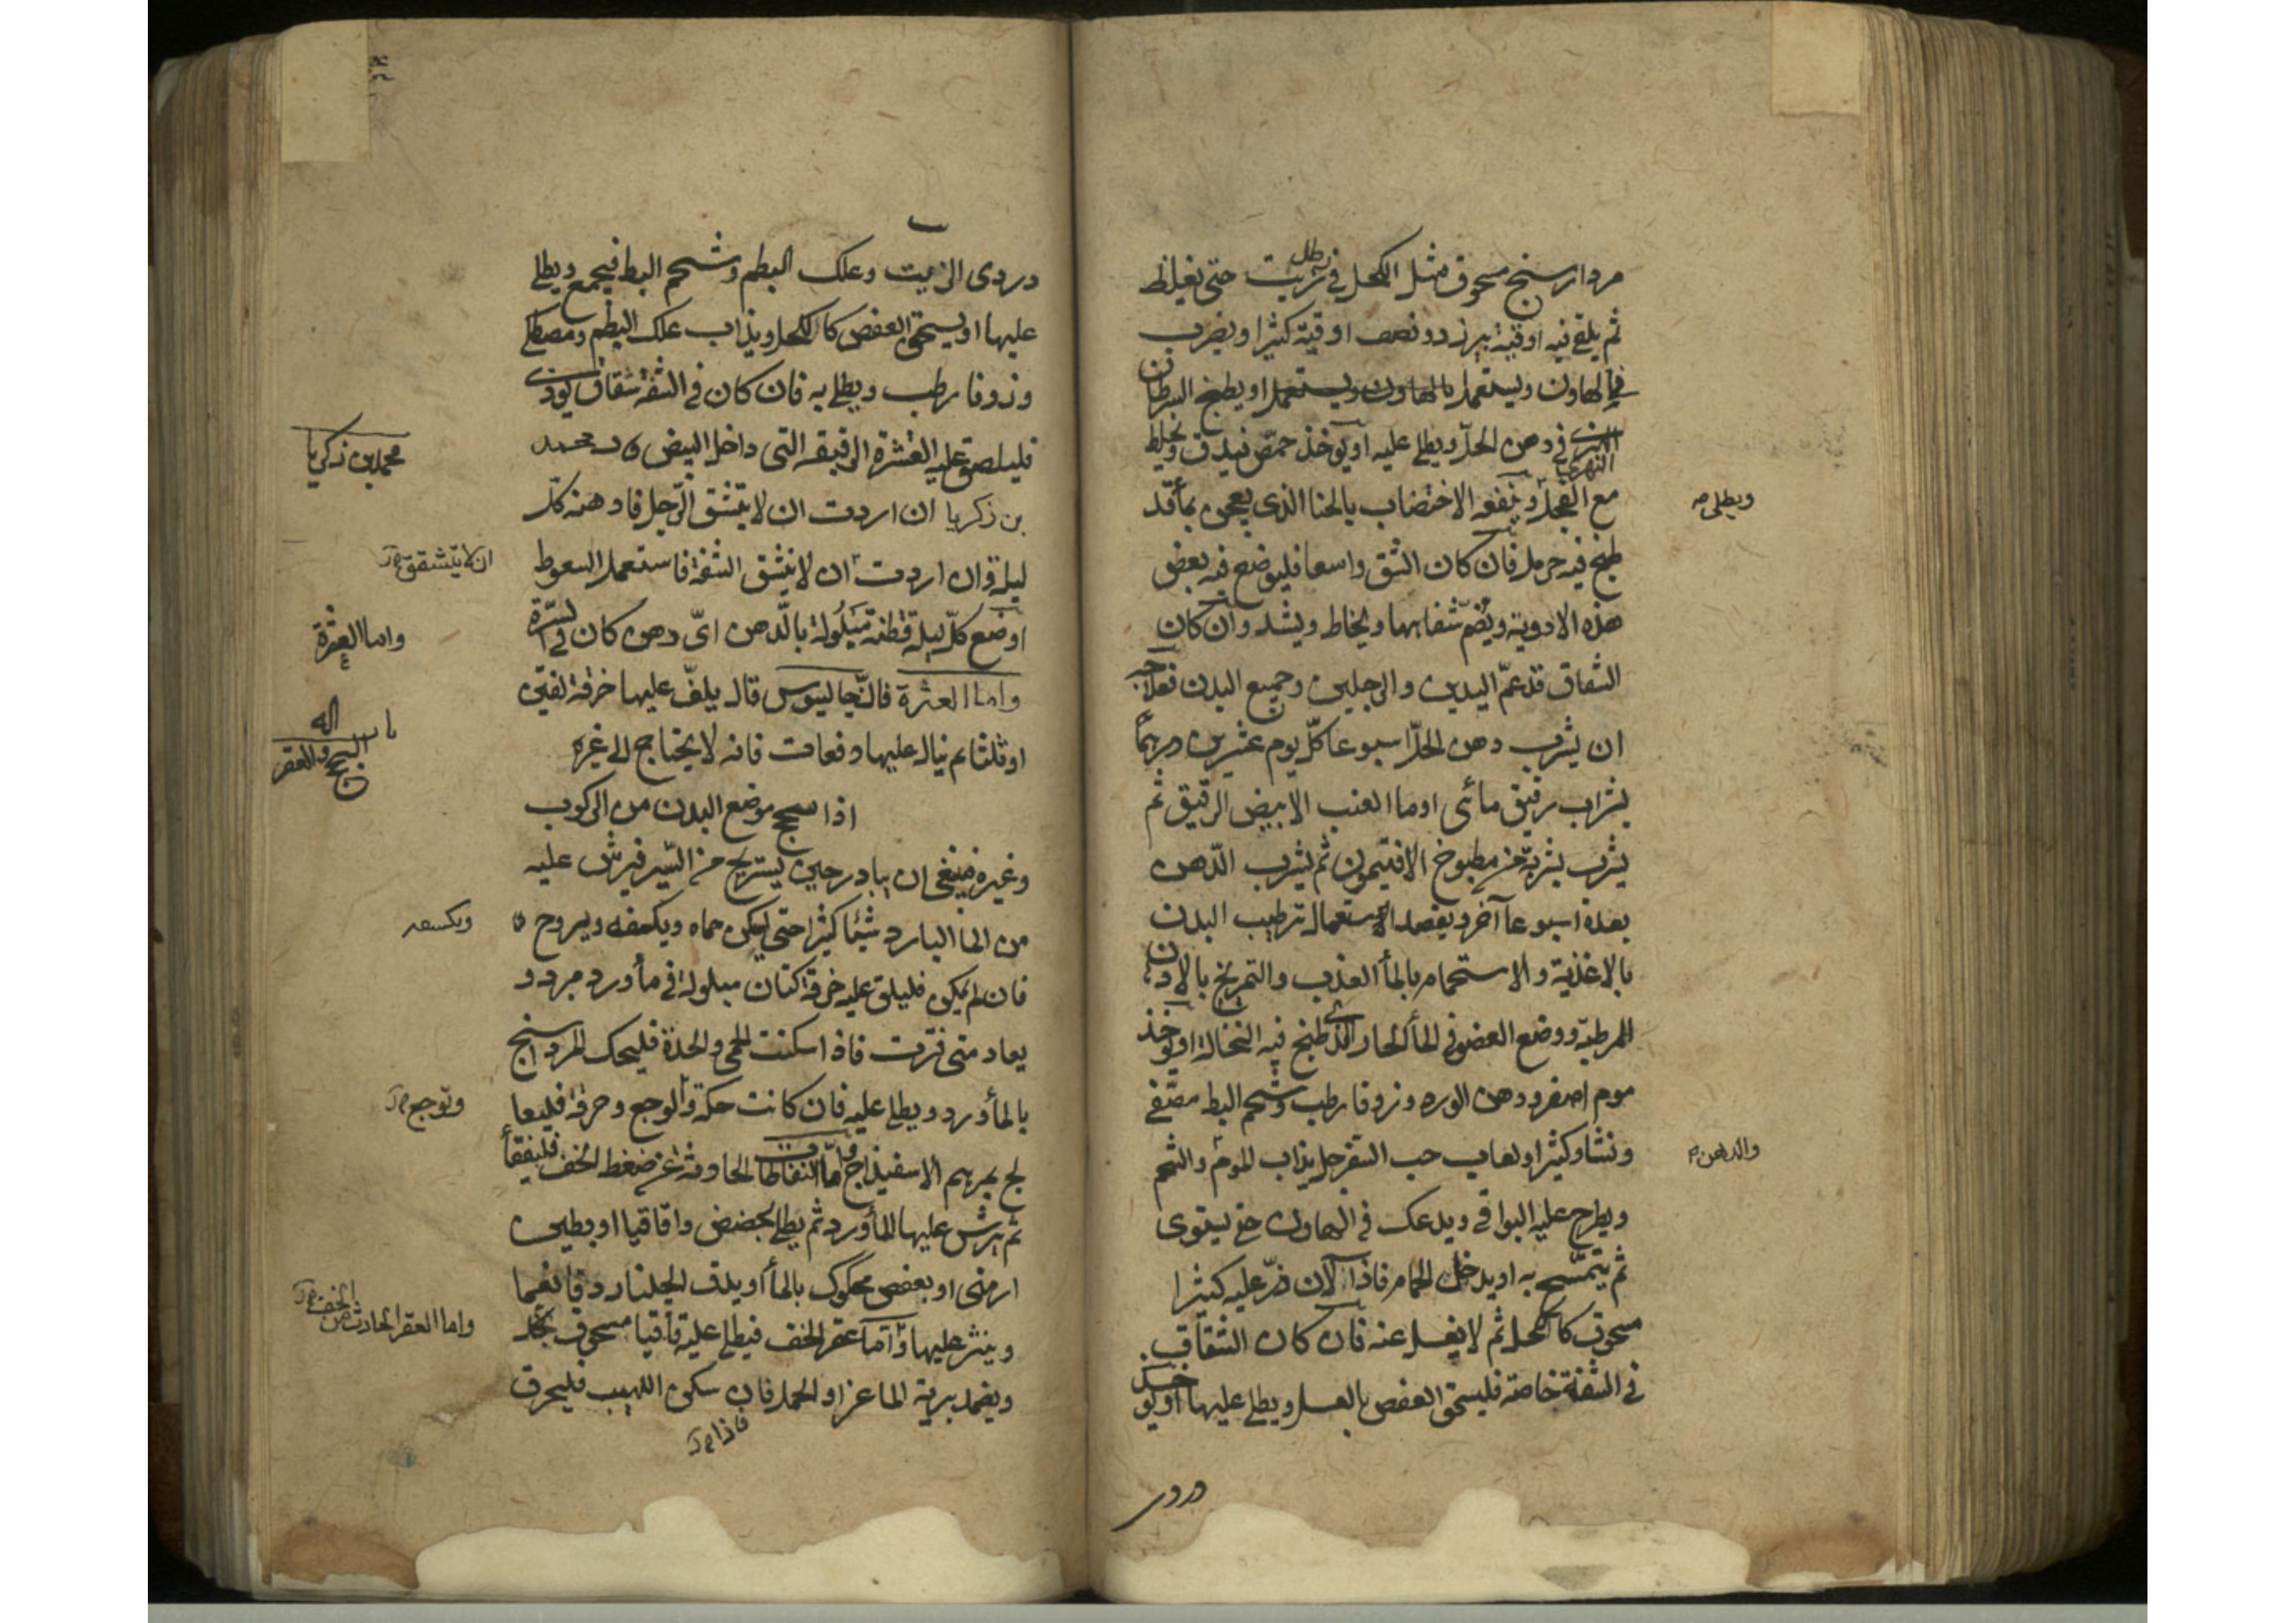 مرداسنج مسحوق مثل الكحل في رطل زيت حتى يغلظ
ثم يلقى فيه اوقية بيرزد ونصف اوقية كثيرا ويضرب
في الهاون ويستعمل او يطبخ السرطان
النهري في دهن الحلّ ويطلى عليه او يوخذ حمّص فيدق ويخلط
مع الفجل وينفعه الاختضاب بالحنا الذى يعجن بما قد
طبخ فيه حرمل فان كان الشق واسعا فليوضع فيه بعض
هذه الادوية ويضمّ شفاهها ويخاط ويشد وان كان
الشقاق قد عمّ اليدين والرجلين وجميع البدن فعلاجه
ان يشرب دهن الحلّ اسبوعا كلّ يوم عشرين درهمًا
بشراب رقيق مائى او ما العنب الابيض الرقيق ثم
يشرب شربة من مطبوخ الافتيمون ثم يشرب الدّهن
بعده اسبوعا آخر ويقصد لاستعمال ترطيب البدن
بالاغذية والاستحمام بالمأ العذب والتمريخ بالادهان
المرطبة ووضع العضو في المأ الحار الذى طبخ فيه النخالة او يوخذ
موم اصفر ودهن الورد وزوفا رطب وشحم البط مصفى
ونشا وكثيرا ولعاب حب السفرجل يذاب الموم والشحم
ويطرح عليه البواقى ويدعك في الهاون حتى يستوى
ثم يتمسّح به او يدخل الحمام فاذا لان ذرّ عليه كثيرا
مسحوق كالكحل ثم لا يغسل عنه فان كان الشقاق
في الشفة خاصة فليسحق العفص بالعسل ويطلى عليها او يوخذ
دردى
ويطلى
والدهن
دردى الزيت وعلك البطم وشحم البط فيجمع ويطلى
عليها او يسحق العفص كالكحل ويذاب علك البطم ومصطكى
وزوفا رطب ويطلى به فان كان في الشفة شقاق يوذى
فليلصق عليه القشرة الرقيقة التى داخل البيض محمد
بن زكريا ان اردت ان لا يتشقق الرّجل فادهنه كل
ليلة وان اردت ان لا يتشقق الشفة فاستعمل السعوط
او ضع كلّ ليلة قطنة مبلولة بالدّهن اىّ دهن كان في السّرّة
واما العثرة فانّ جالينوس قال يلفّ عليها خرقة لفتين
او ثلثا ثم يبال عليها دفعات فانه لا يحتاج الى غيره
اذا سحج موضع البدن من الركوب
وغيره فينبغى ان يبادر حين يستريح من السّير فيرش عليه
من الما البارد شيئا كثيرا حتى يسكن حماه ويكمفه ويروح
فان لم يكن فليلق عليه خرقة كتان مبلولة في مأورد مبرد و
يعاد متى فترت فاذا سكنت الحمى والحدة فليحك المرداسنج
بالمأورد ويطلى عليه فان كانت حكة والوجع وحرقة فليعا
لج بمرهم الاسفيذاج وامّا النفاطات الحادثة عن ضغط الخف فليفقأ
ثم يرش عليها المأورد ثم يطلى بحضض واقاقيا او بطين
ارمنى او بعفص محكوك بالمأ او يدق الجلنار دقا نعما
وينثر عليها وامّا عقر الخف فيطلى عليه قاقيا مسحوق بخل
ويضمد برية الماعز او الحمل فان سكن اللهيب فليحرق
فاذا
محمد بن زكريا
ان لا يتشقق
واما العثرة
باب
السحج والعقر
وتوجع
واما العقر الحادث من الخف